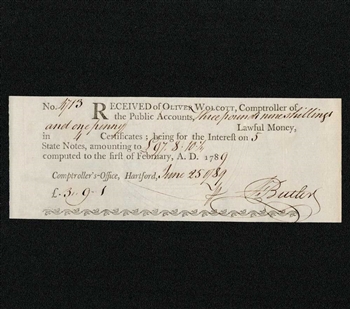 No. 4713 RECEIVED of OLIVER WOLCOTT, Comptroller of
the Public Accounts, three pounds nine shillings
and one penny Lawful Money,
in 4 Certificates; being for the Interest on 5
State Notes, amounting to £97.8.10¼
computed to the first of February, A. D. 1789
Comptroller's-Office, Hartford, June 25 1789
£-3-9-1 Butler